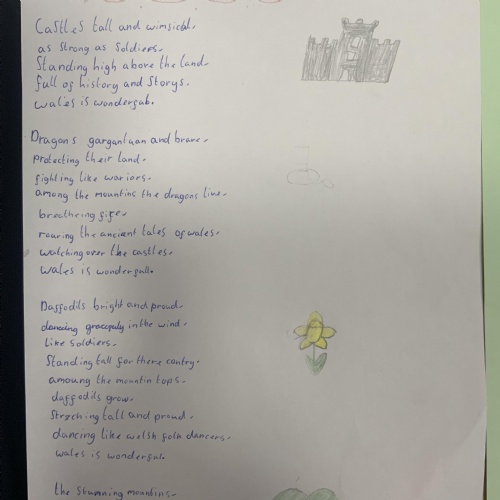 Castles tall and wimsical.
as strong as Soldiers.
Standing high above the land.
full of history and storys.
wales is wonderfub.
Dragons gargantuan and brave.
protecting their land.
fighting like wariors.
among the mountins the dragons live.
breatheing fife.
roaring the ancient tales of wales.
watching over the castles.
wales is wonderfull.
Daffodils bright and proud.
dancing gracefuly in the wind.
Like soldiers.
Standing tall for there contry.
amoung the mountin tops.
daffodils grow.
Streching tall and proud.
dancing like welsh folk dancers.
wales is wonderful.
the stunning mountins.